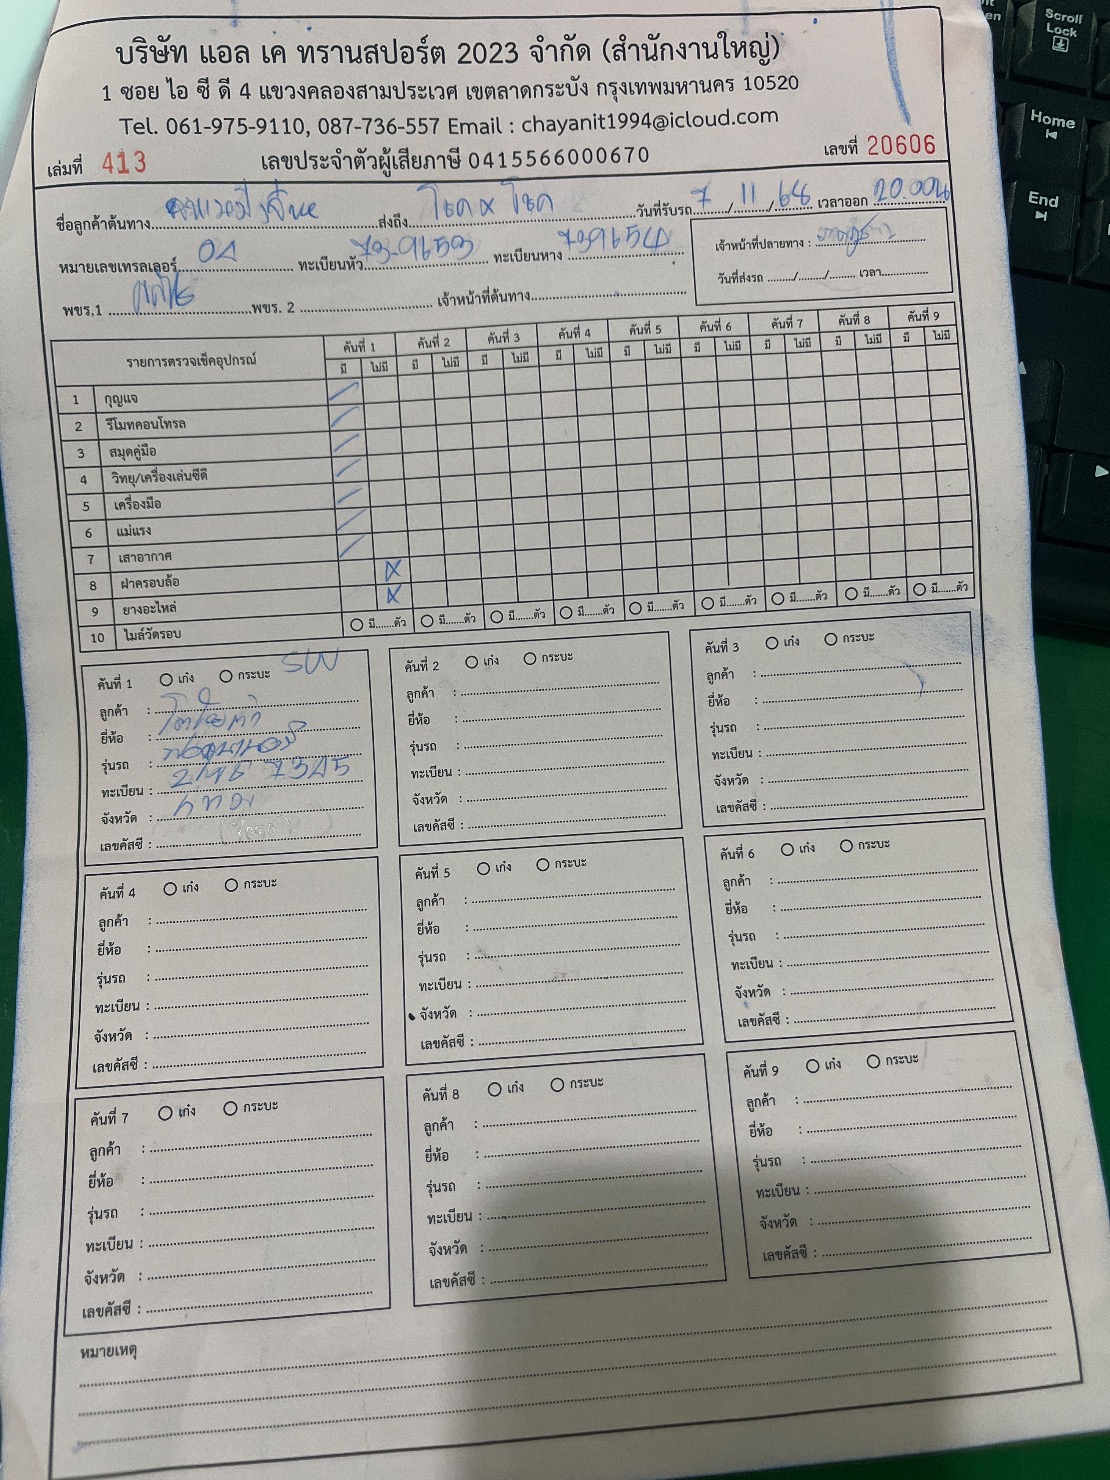 บริษัท แอล เค ทรานสปอร์ต 2023 จำกัด (สำนักงานใหญ่)
1 ซอย ไอ ซี ดี 4 แขวงคลองสามประเวศ เขตลาดกระบัง กรุงเทพมหานคร 10520
Tel. 061-975-9110, 087-736-557 Email : chayanit1994@icloud.com
เล่มที่ 413 เลขประจำตัวผู้เสียภาษี 0415566000670 เลขที่ 20606
ชื่อลูกค้าต้นทาง ส่งถึง โชค x โชค วันที่รับรถ 7 / 11 / 68 เวลาออก 20.00น
หมายเลขเทรลเลอร์ 04 ทะเบียนหัว 73-9653 ทะเบียนหาง 739654 เจ้าหน้าที่ปลายทาง :
พขร.1 พขร. 2 เจ้าหน้าที่ต้นทาง วันที่ส่งรถ ......../......../........ เวลา
รายการตรวจเช็คอุปกรณ์ คันที่ 1 คันที่ 2 คันที่ 3 คันที่ 4 คันที่ 5 คันที่ 6 คันที่ 7 คันที่ 8 คันที่ 9
มี ไม่มี มี ไม่มี มี ไม่มี มี ไม่มี มี ไม่มี มี ไม่มี มี ไม่มี มี ไม่มี มี ไม่มี
1 กุญแจ
2 รีโมทคอนโทรล
3 สมุดคู่มือ
4 วิทยุ/เครื่องเล่นซีดี
5 เครื่องมือ
6 แม่แรง
7 เสาอากาศ
8 ฝาครอบล้อ x
9 ยางอะไหล่ x
10 ไมล์วัดรอบ มี......ตัว มี......ตัว มี......ตัว มี......ตัว มี......ตัว มี......ตัว มี......ตัว มี......ตัว มี......ตัว
คันที่ 1 เก๋ง กระบะ
ลูกค้า :
ยี่ห้อ : โตโยต้า
รุ่นรถ :
ทะเบียน : 7345
จังหวัด : กทม
เลขคัสซี :
คันที่ 2 เก๋ง กระบะ
ลูกค้า :
ยี่ห้อ :
รุ่นรถ :
ทะเบียน :
จังหวัด :
เลขคัสซี :
คันที่ 3 เก๋ง กระบะ
ลูกค้า :
ยี่ห้อ :
รุ่นรถ :
ทะเบียน :
จังหวัด :
เลขคัสซี :
คันที่ 4 เก๋ง กระบะ
ลูกค้า :
ยี่ห้อ :
รุ่นรถ :
ทะเบียน :
จังหวัด :
เลขคัสซี :
คันที่ 5 เก๋ง กระบะ
ลูกค้า :
ยี่ห้อ :
รุ่นรถ :
ทะเบียน :
จังหวัด :
เลขคัสซี :
คันที่ 6 เก๋ง กระบะ
ลูกค้า :
ยี่ห้อ :
รุ่นรถ :
ทะเบียน :
จังหวัด :
เลขคัสซี :
คันที่ 7 เก๋ง กระบะ
ลูกค้า :
ยี่ห้อ :
รุ่นรถ :
ทะเบียน :
จังหวัด :
เลขคัสซี :
คันที่ 8 เก๋ง กระบะ
ลูกค้า :
ยี่ห้อ :
รุ่นรถ :
ทะเบียน :
จังหวัด :
เลขคัสซี :
คันที่ 9 เก๋ง กระบะ
ลูกค้า :
ยี่ห้อ :
รุ่นรถ :
ทะเบียน :
จังหวัด :
เลขคัสซี :
หมายเหตุ
Scroll
Lock
Home
End